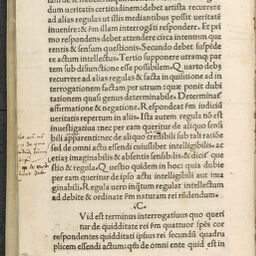 dum veritatis certitudinem: debet artista recurrere
ad alias regulas ut illis mediantibus possit veritatē
inuenire: & ꝼm illam interrogāti respondere. Et pri
mo respondens debet attendere circa intentum que
rentis & sensum questionis. Secundo debet suspēde
re actum intellectus. Tertio supponere utramq; par
tem sub disiunctione esse possibilem. Quarto debet
recurrere ad alias regulas & facta inquisitione ad in
terrogationem factam per utrum: quæ ponit dubi
tationem quasi genus determinabile. Determinat
affirmatione & negatione. Respondeat ꝼm iudiciū
veritatis repertum in aliis. Ista autem regula nō est
inuestigatiua nec per eam queritur de aliquo sensi
bili apparenti nec de aliquo credibili sub tali ratiōe
sed de omni actu essendi cuiuslibet intelligibilis, ac
etiā imaginabilis & absentis sensibilis: & dicit quę
stio & regula. Questio quidem in hoc quia dubie
per eam queritur de ipso actu intelligibili aut ima
ginabili. Regula uero inquātum regulat intellectum
ad debite & ordinate ꝼm naturam rei rūdendum.
.C.
Vid est terminus interrogatiuus quo queri
tur de quidditate rei ꝼm quattuor spēs cor
respondentes quidditati ipsius rei secundū quadru
plicem essendi actum: qꝼm de omni ente quid est in